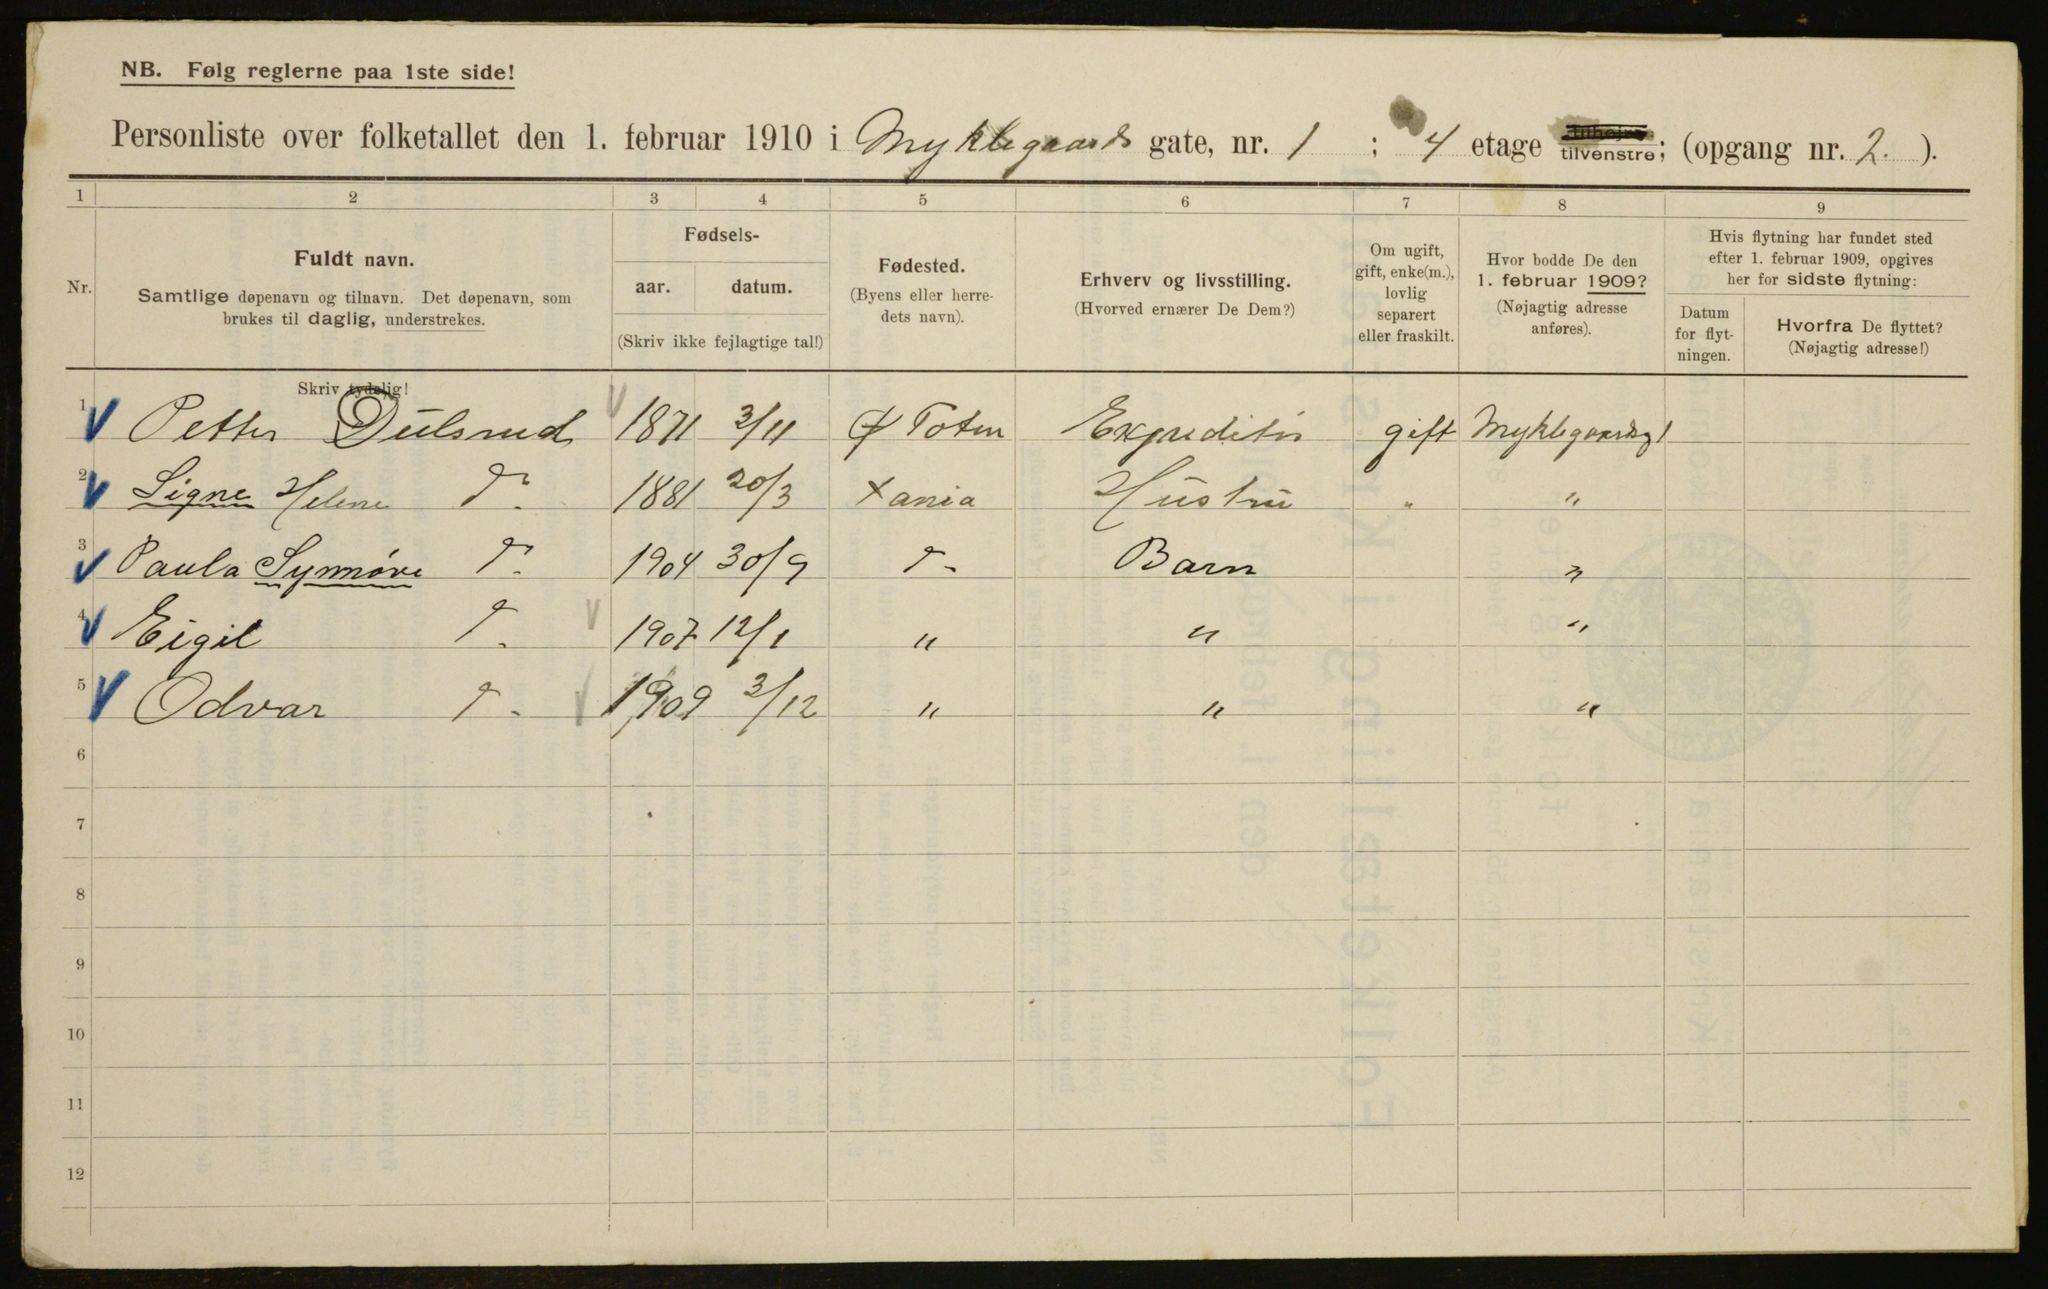 NB. Følg reglerne paa 1ste side!
Personliste over folketallet den 1. februar 1910 i Myklegaards gate, nr. 1 ; 4 etage tilhøjre tilvenstre; (opgang nr. 2. ).
1 2 3 4 5 6 7 8 9
Nr.
Fuldt navn.
Samtlige døpenavn og tilnavn. Det døpenavn, som
brukes til daglig, understrekes.
Fødsels-
aar. datum.
(Skriv ikke fejlagtige tal!)
Fødested.
(Byens eller herre-
dets navn).
Erhverv og livsstilling.
(Hvorved ernærer De Dem?)
Om ugift,
gift, enke(m.),
lovlig
separert
eller fraskilt.
Hvor bodde De den
1. februar 1909?
(Nøjagtig adresse
anføres).
Hvis flytning har fundet sted
efter 1. februar 1909, opgives
her for sidste flytning:
Datum
for flyt-
ningen.
Hvorfra De flyttet?
(Nøjagtig adresse!)
Skriv tydelig!
1 Petter Dulsrud 1871 3/11 Ø Toten Expeditør gift Myklegaardsg 1
2 Signe Helene do. 1881 20/3 Xania Hustru " "
3 Paula Synnøve do. 1904 30/9 do. Barn "
4 Eigil do. 1907 12/1 " " "
5 Odvar do. 1909 3/12 " " "
6
7
8
9
10
11
12